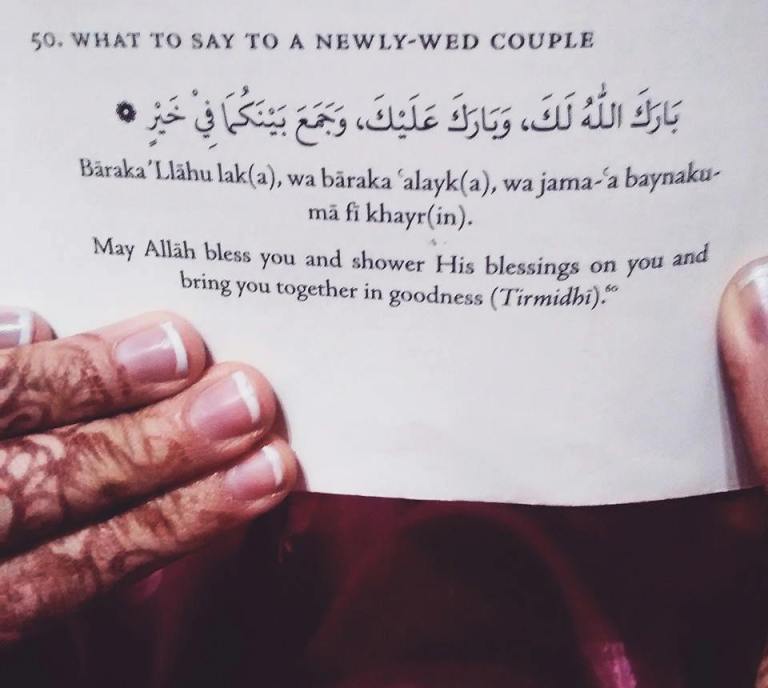 50. WHAT TO SAY TO A NEWLY-WED COUPLE
بَارَكَ اللّٰهُ لَكَ، وَبَارَكَ عَلَيْكَ، وَجَمَعَ بَيْنَكُمَا فِيْ خَيْرٍ
Bāraka’Llāhu lak(a), wa bāraka ʿalayk(a), wa jama-ʿa baynaku-
mā fī khayr(in).
May Allāh bless you and shower His blessings on you and
bring you together in goodness (Tirmidhī).⁶⁰